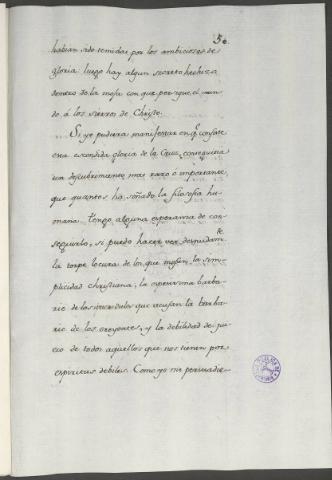 5
habian sido temidas por los ambiciosos de
gloria: luego hay algun secreto hechizo
dentro de la mofa con que persigue el mun
do á los siervos de Christo.
Si yo pudiera manifestar en q.e consiste
esta escondida gloria de la Cruz, conseguiria
un descubrimiento mas raro é importante,
que quantos ha soñado la filosofia hu
mana. Tengo alguna esperanza de con
seguirlo, si puedo hacer ver despejadam.te
la torpe locura de los que mofan la sim
plicidad christiana, la espesisima barba
rie de los incredulos que acusan la barba
rie de los creyentes, y la debilidad de jui
cio de todos aquellos que nos tienen por
espiritus debiles. Como yo me persuadie-